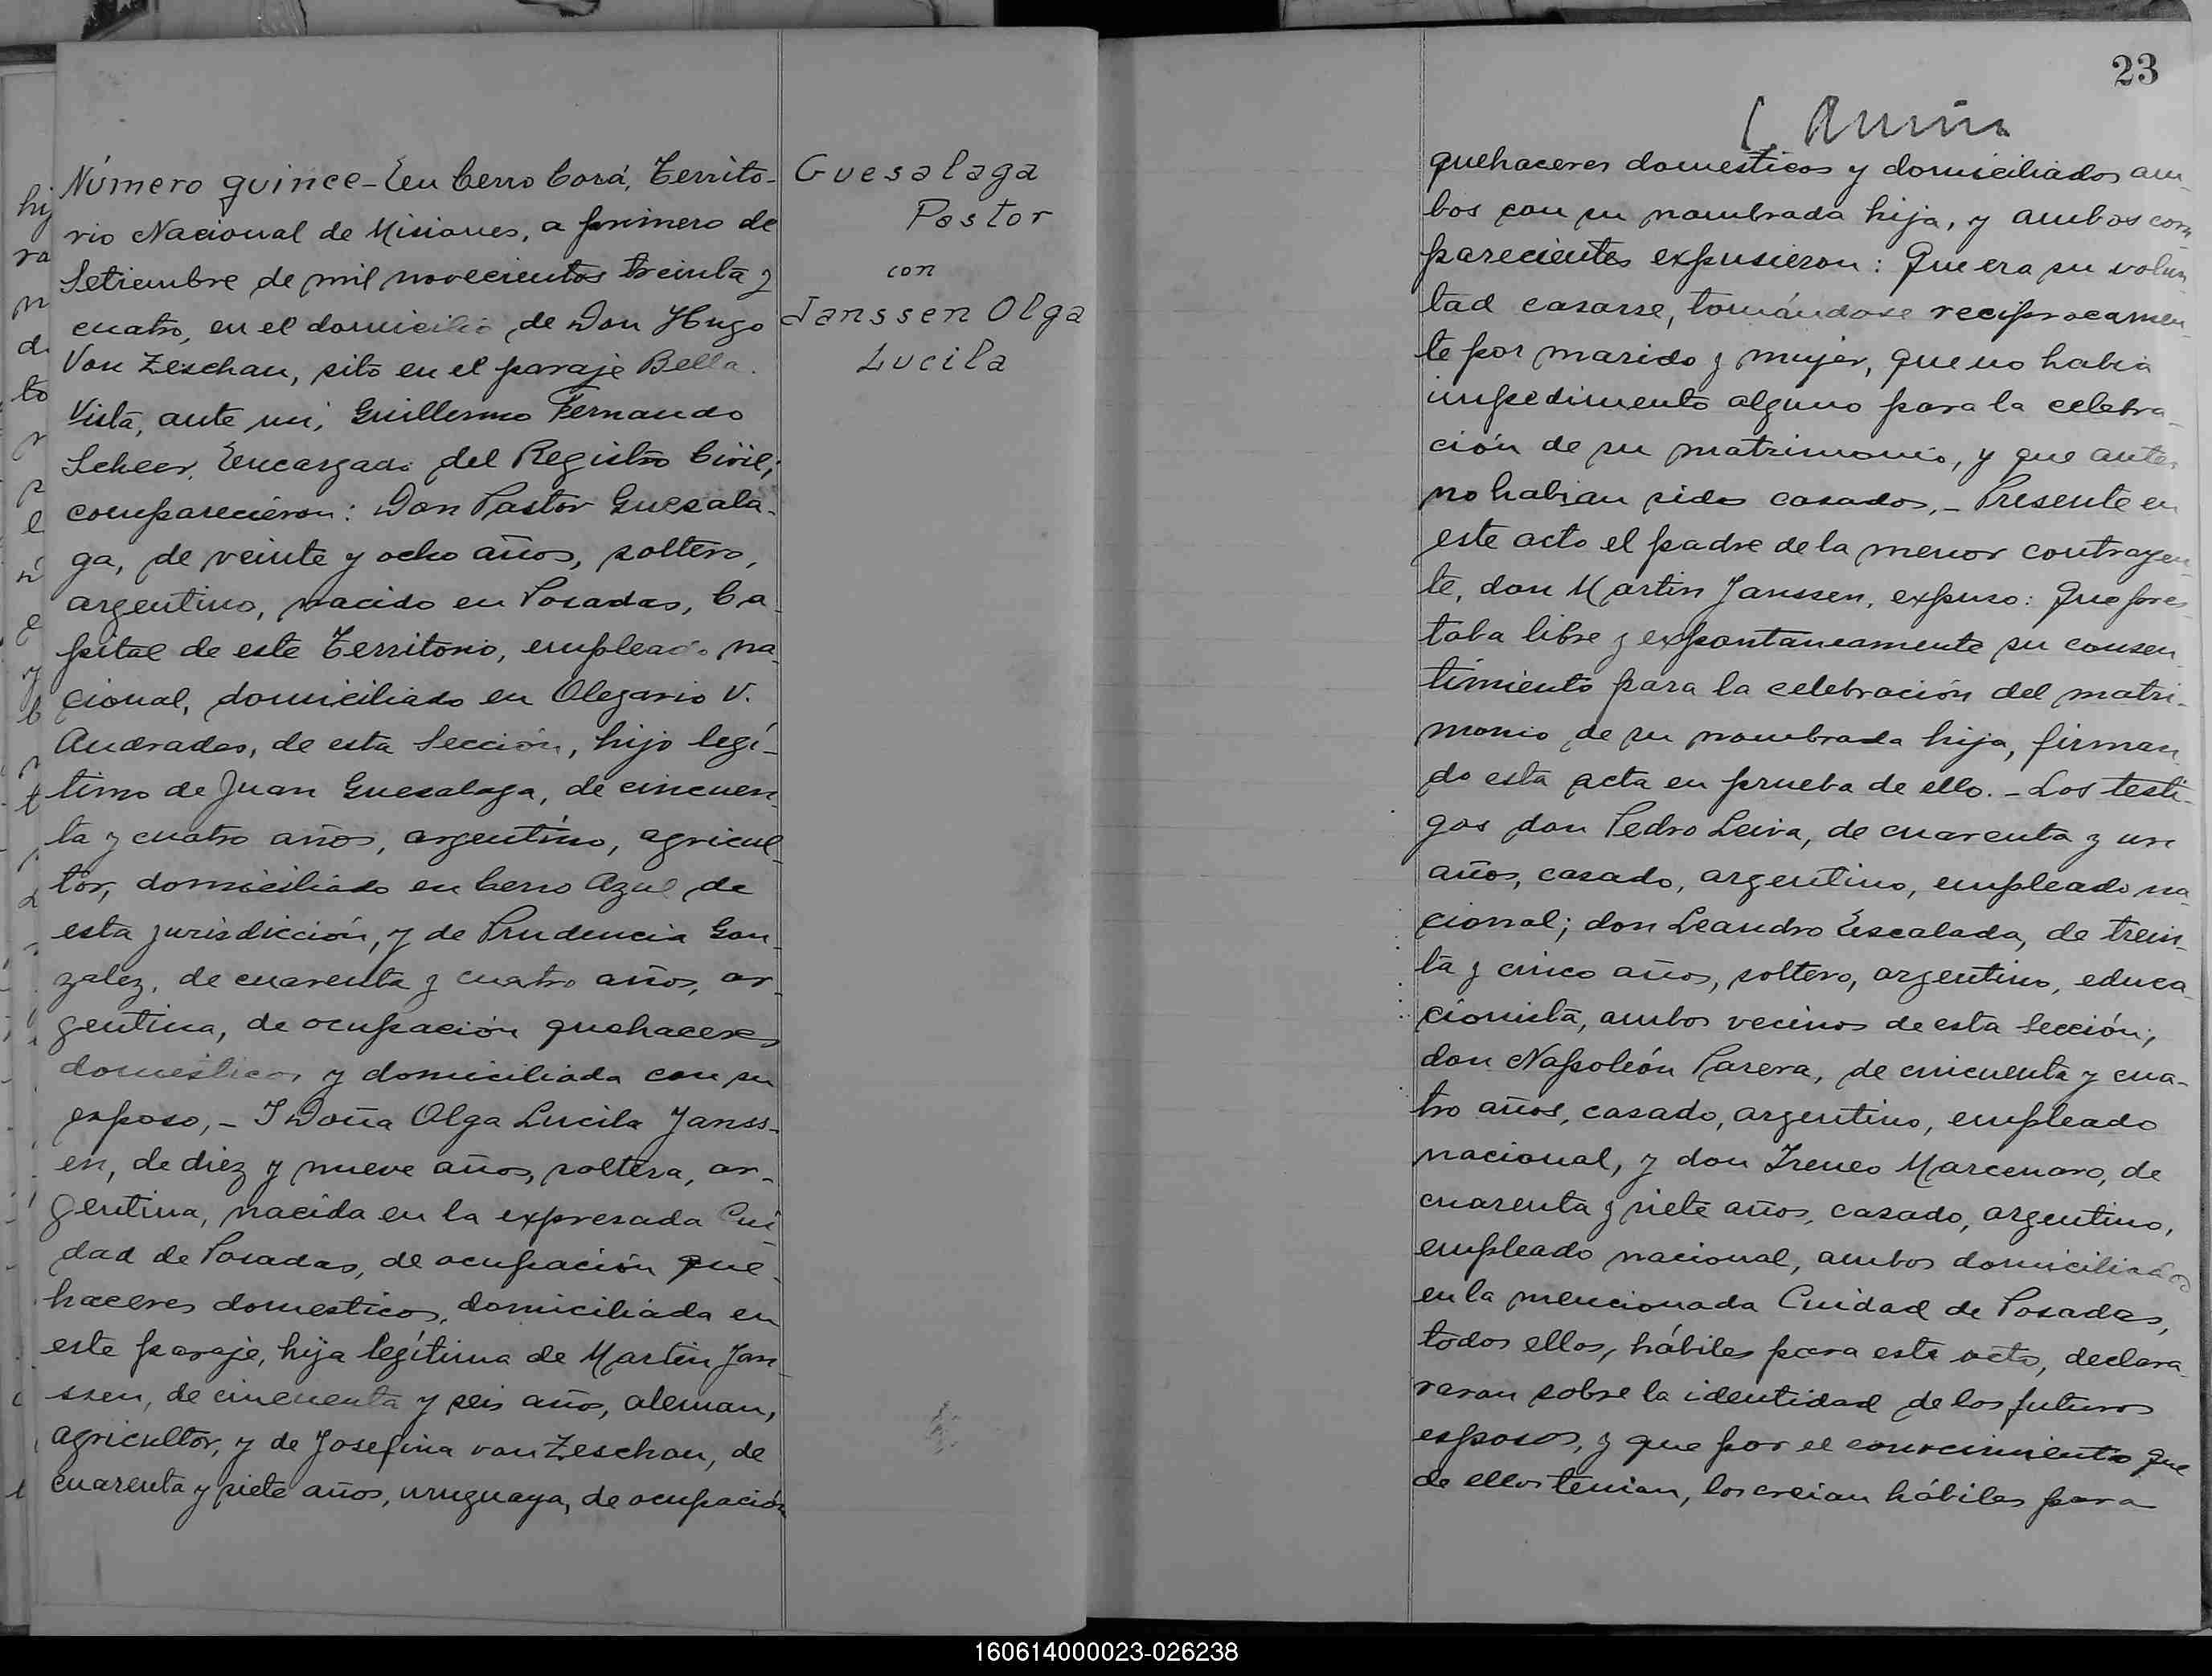 Número quince - En Cerro Corá, Territo-
rio Nacional de Misiones, a primero de
Setiembre de mil novecientos treinta y
cuatro, en el domicilio de Don Hugo
Von Zeschau, sito en el paraje Bella
Vista, ante mi, Guillermo Fernando
Scheer, Encargado del Registro Civil;
comparecieron: Don Pastor Guesala-
ga, de veinte y ocho años, soltero,
argentino, nacido en Posadas, Ca-
pital de este Territorio, empleado na-
cional, domiciliado en Olegario V.
Andrades, de esta Sección, hijo legí-
timo de Juan Guesalaga, de cincuen-
ta y cuatro años, argentino, agricul-
tor, domiciliado en Cerro Azul de
esta jurisdicción, y de Prudencia Gon-
zalez, de cuarenta y cuatro años, ar-
gentina, de ocupación quehaceres
domesticos y domiciliada con su
esposo, - I Doña Olga Lucila Janss-
en, de diez y nueve años, soltera, ar-
gentina, nacida en la expresada Ciu-
dad de Posadas, de ocupación que-
haceres domesticos, domiciliada en
este paraje, hija legítima de Martin Jan-
ssen, de cincuenta y seis años, aleman,
agricultor, y de Josefina von Zeschau, de
cuarenta y siete años, uruguaya, de ocupación
Guesalaga
Pastor
con
Janssen Olga
Lucila
23
quehaceres domesticos y domiciliados am-
bos con su nombrada hija, y ambos com-
parecientes expusieron: Que era su volun-
tad casarse, tomándose reciprocamen-
te por marido y mujer, que no habia
impedimento alguno para la celebra-
ción de su matrimonio, y que antes
no habian sido casados, - Presente en
este acto el padre de la menor contrayen-
te, don Martin Janssen, expuso: Que pres-
taba libre y expontaneamente su consen-
timiento para la celebración del matri-
monio de su nombrada hija, firman-
do esta acta en prueba de ello. - Los testi-
gos don Pedro Leiva, de cuarenta y un
años, casado, argentino, empleado na-
cional; don Leandro Escalada, de trein-
ta y cinco años, soltero, argentino, educa-
cionista, ambos vecinos de esta Sección;
don Napoleón Parera, de cincuenta y cua-
tro años, casado, argentino, empleado
nacional, y don Ireneo Marcenaro, de
cuarenta y siete años, casado, argentino,
empleado nacional, ambos domiciliados
en la mencionada Ciudad de Posadas,
todos ellos, hábiles para este acto, declara-
raron sobre la identidad de los futuros
esposos, y que por el conocimiento que
de ellos tenian, los creian hábiles para
160614000023-026238